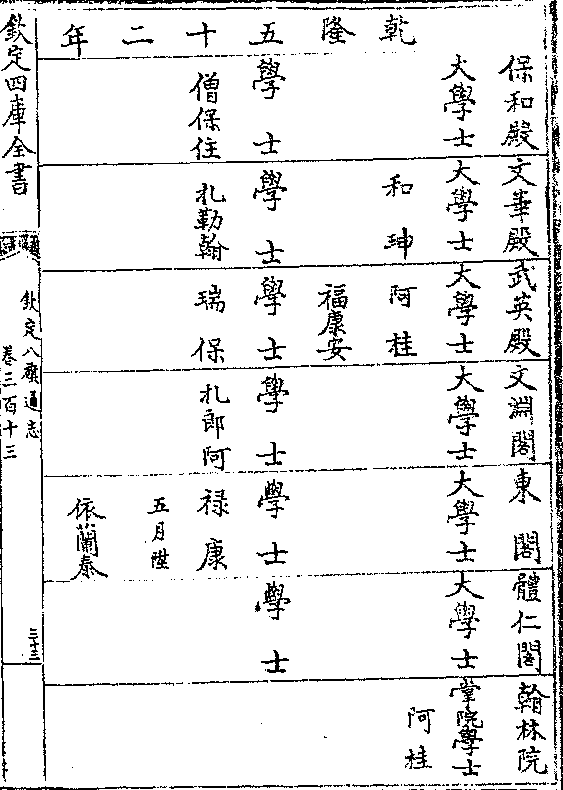 乾隆五十二年
保和殿 文華殿 武英殿 文淵閣 東閣 體仁閣 翰林院
大學士 大學士 大學士 大學士 大學士 大學士 掌院學士
和珅 阿桂 阿桂
福康安
學士 學士 學士 學士 學士 學士
僧保住 扎勒翰 瑞保 扎郎阿 祿康
五月陞
依蘭泰
欽定四庫全書
欽定八旗通志
卷三百十三
三十三